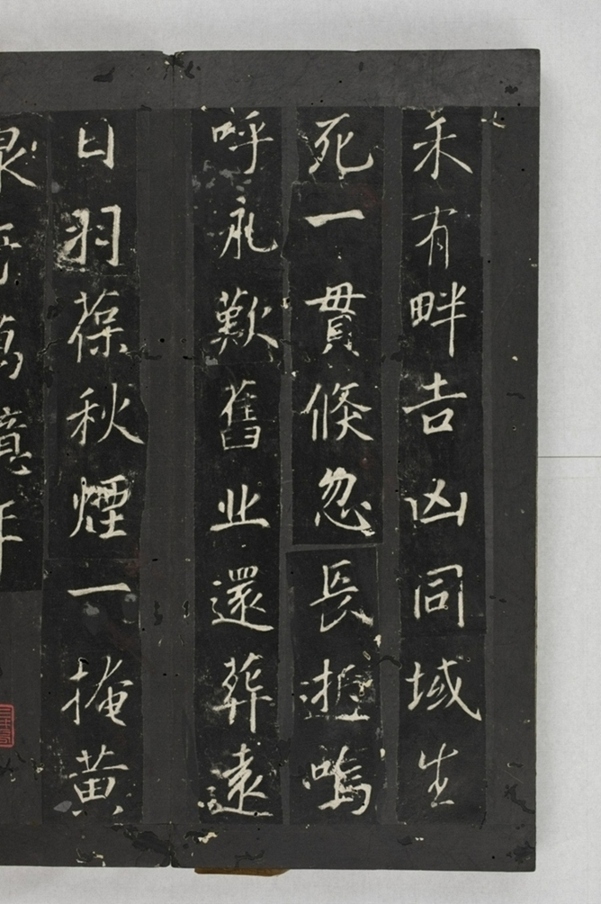 未有畔吉凶同域生
死一貫倏忽長逝嗚
呼永歎舊丘還葬遠
日羽葆秋煙一掩黄
泉萬億年